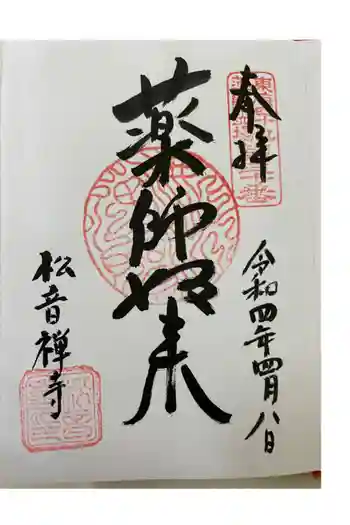 奉拝
薬師如来
令和四年四月八日
松音禅寺